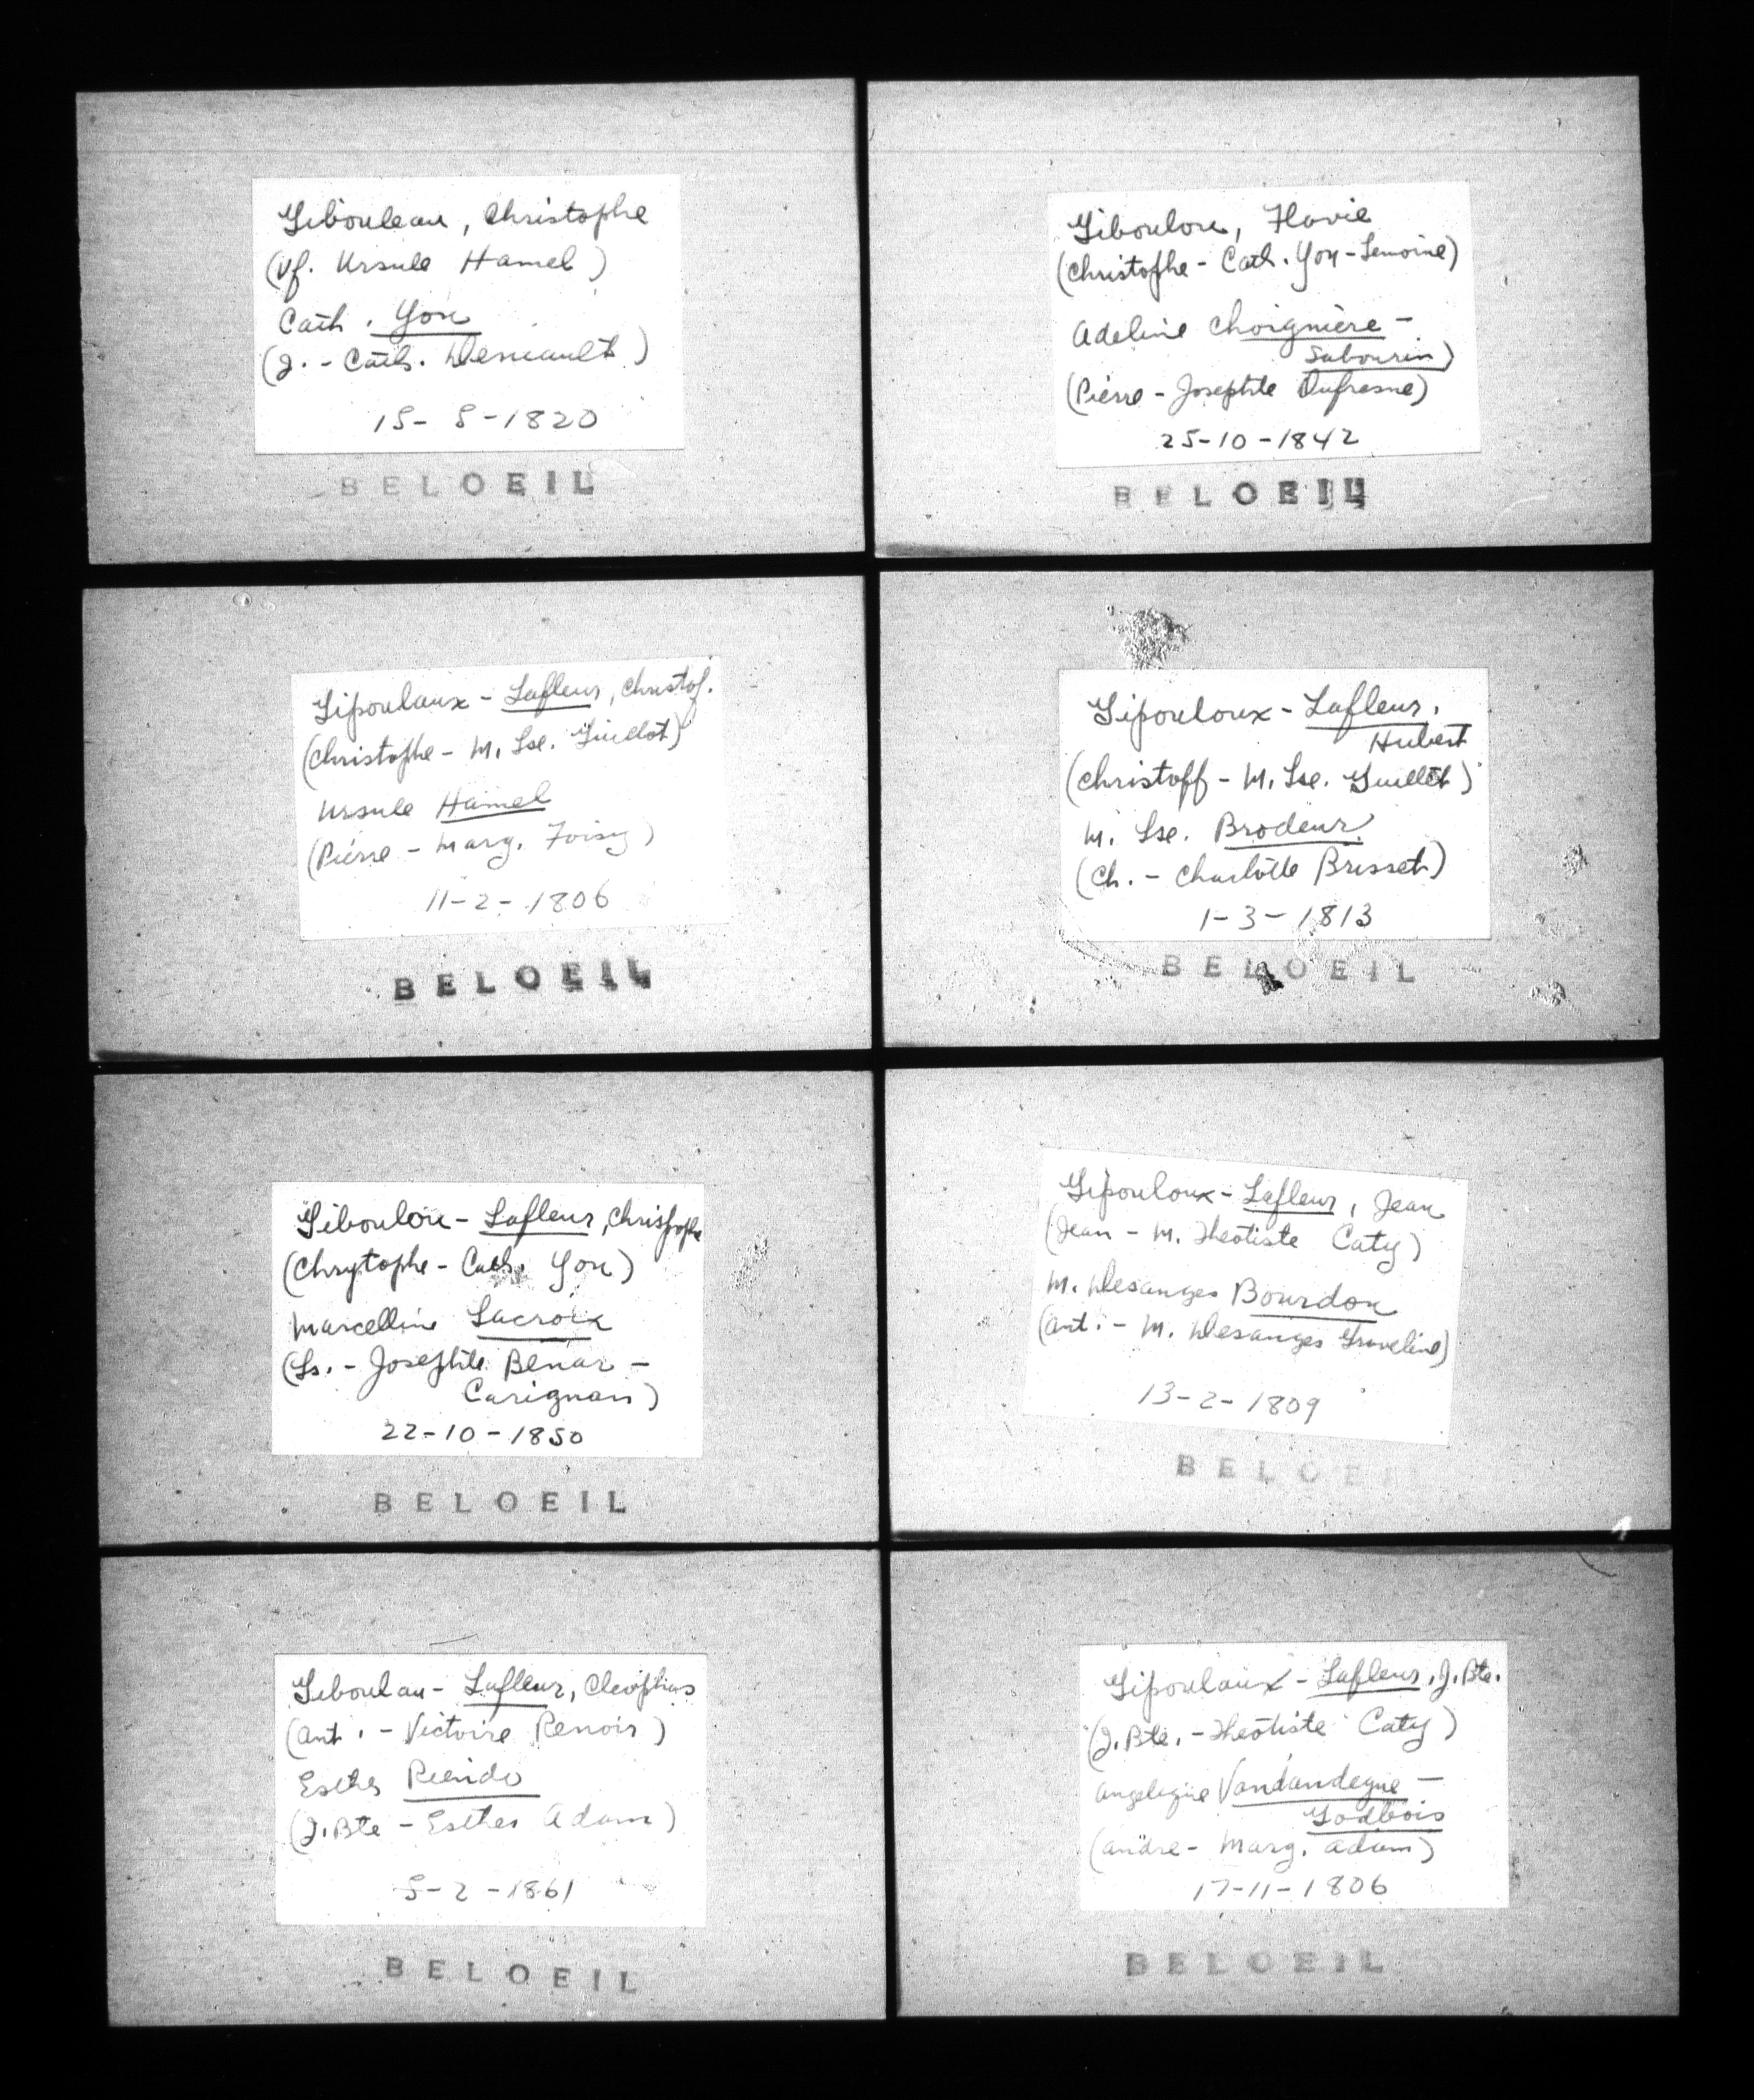 Gibouleau, Christophe
(Vf. Ursule Hamel)
Cath. You
(J. - Cath. Deniault)
15-8-1820
BELOEIL
Giboulou, Flavie
(Christophe - Cath. You-Lemoine)
Adeline Choignière -
Sabourin)
(Pierre - Josephte Dufresne)
25-10-1842
BELOEIL
Gipoulaux - Lafleur, Christof.
(Christophe - M. Lse. Guillot)
Ursule Hamel
(Pierre - Marg. Foisy)
11-2-1806
BELOEIL
Gipouloux - Lafleur,
Hubert
(Christoff - M. Lse. Guillet)
M. Lse. Brodeur
(Ch. - Charlotte Brisset)
1-3-1813
BELOEIL
Giboulou - Lafleur, Christophe
(Chrytophe - Cath. You)
Marcelline Lacroix
(Ls. - Josephte Benar -
Carignan)
22-10-1850
BELOEIL
Gipouloux - Lafleur, Jean
(Jean - M. Theotiste Caty)
M. Desanges Bourdon
(Ant. - M. Desanges Graveline)
13-2-1809
BELOEIL
Giboulau - Lafleur, Cleophas
(Ant. - Victoire Renoir)
Esther
(J.Bte - Esther Adam)
5-2-1861
BELOEIL
Gipoulaux - Lafleur, J. Bte.
(J. Bte. - Theotiste Caty)
Angelique Vandandegue -
Godbois
(Andre - Marg. Adam)
17-11-1806
BELOEIL